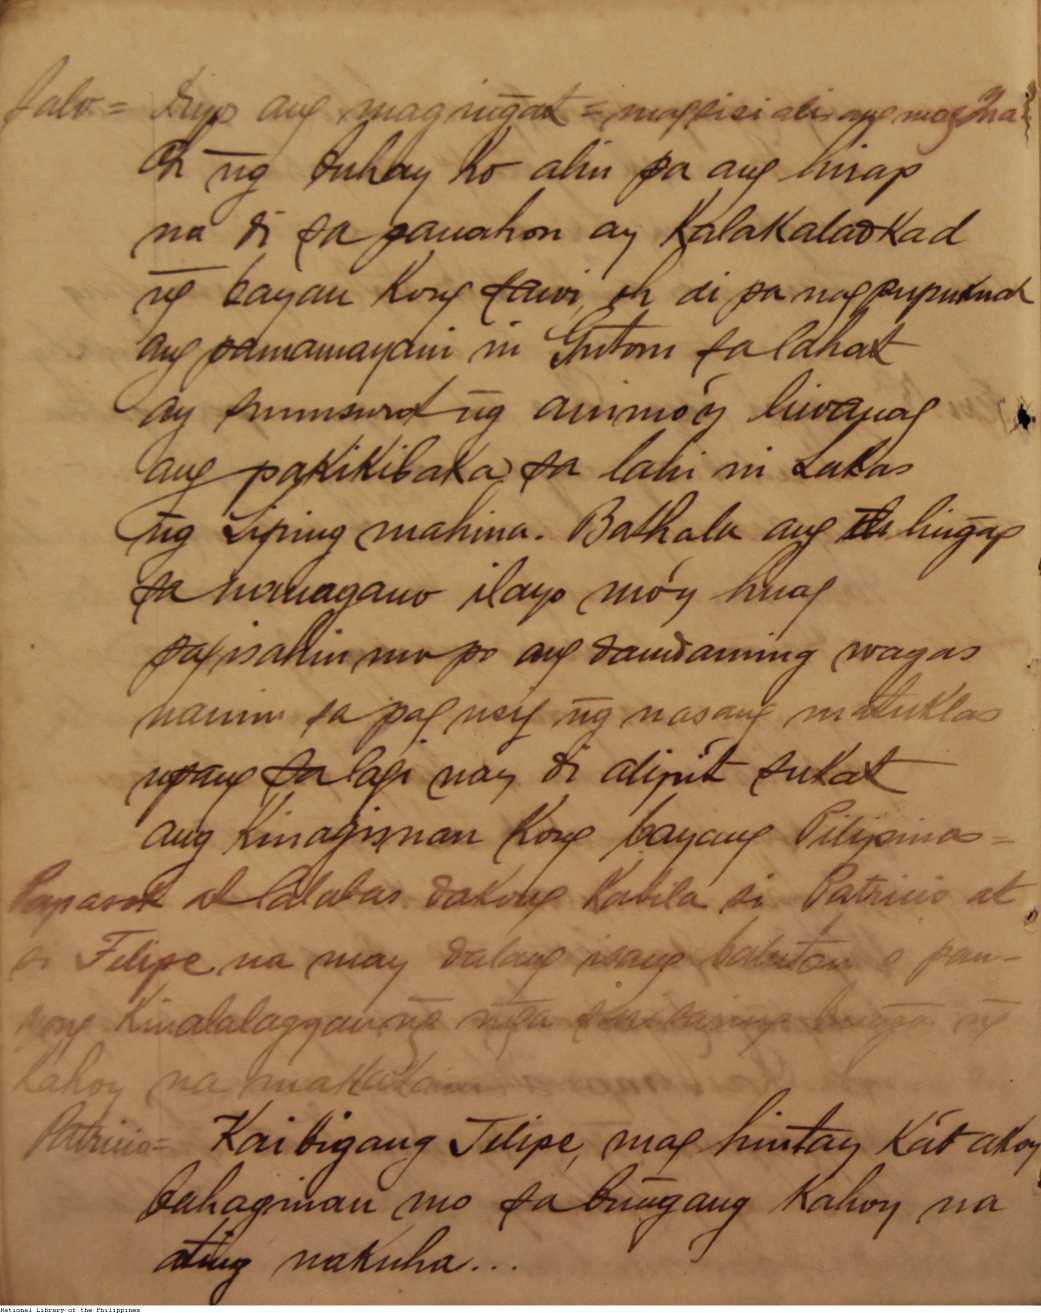 ang mag ingat = magsisi alis ang mag
Oh ng buhay ko alin pa ang hirap
na di sa panahon ay Kalakaladkad
ng bayan Kong sawi, oh di pa nag pupuknat
ang pamamayani ni Gutom sa lahat
ay sumusurot ng animó'y liwanag
ang pakikibaka sa lahi ni Lakas
ng Liping mahina. Bathala ang lingap
sa ilayo mó'y huag
mo po ang damdaming wagas
namin sa pag usig ng nasang matuklas
upang sa lagi nay di alipit sukat
ang Kinagisnan Kong bayang Pilipinas =
Papasok at lalabas dakong Kabila si Patricio at
si Felipe na may dalang isang balutan o pan-
yong Kinalalagyan ng mga bunga ng
Kahoy na makakain
Patricio = Kaibigang Felipe, mag hintay Ká't akoy
bahaginan mo sa bungang Kahoy na
ating nakuha...
National Library of the Philippines